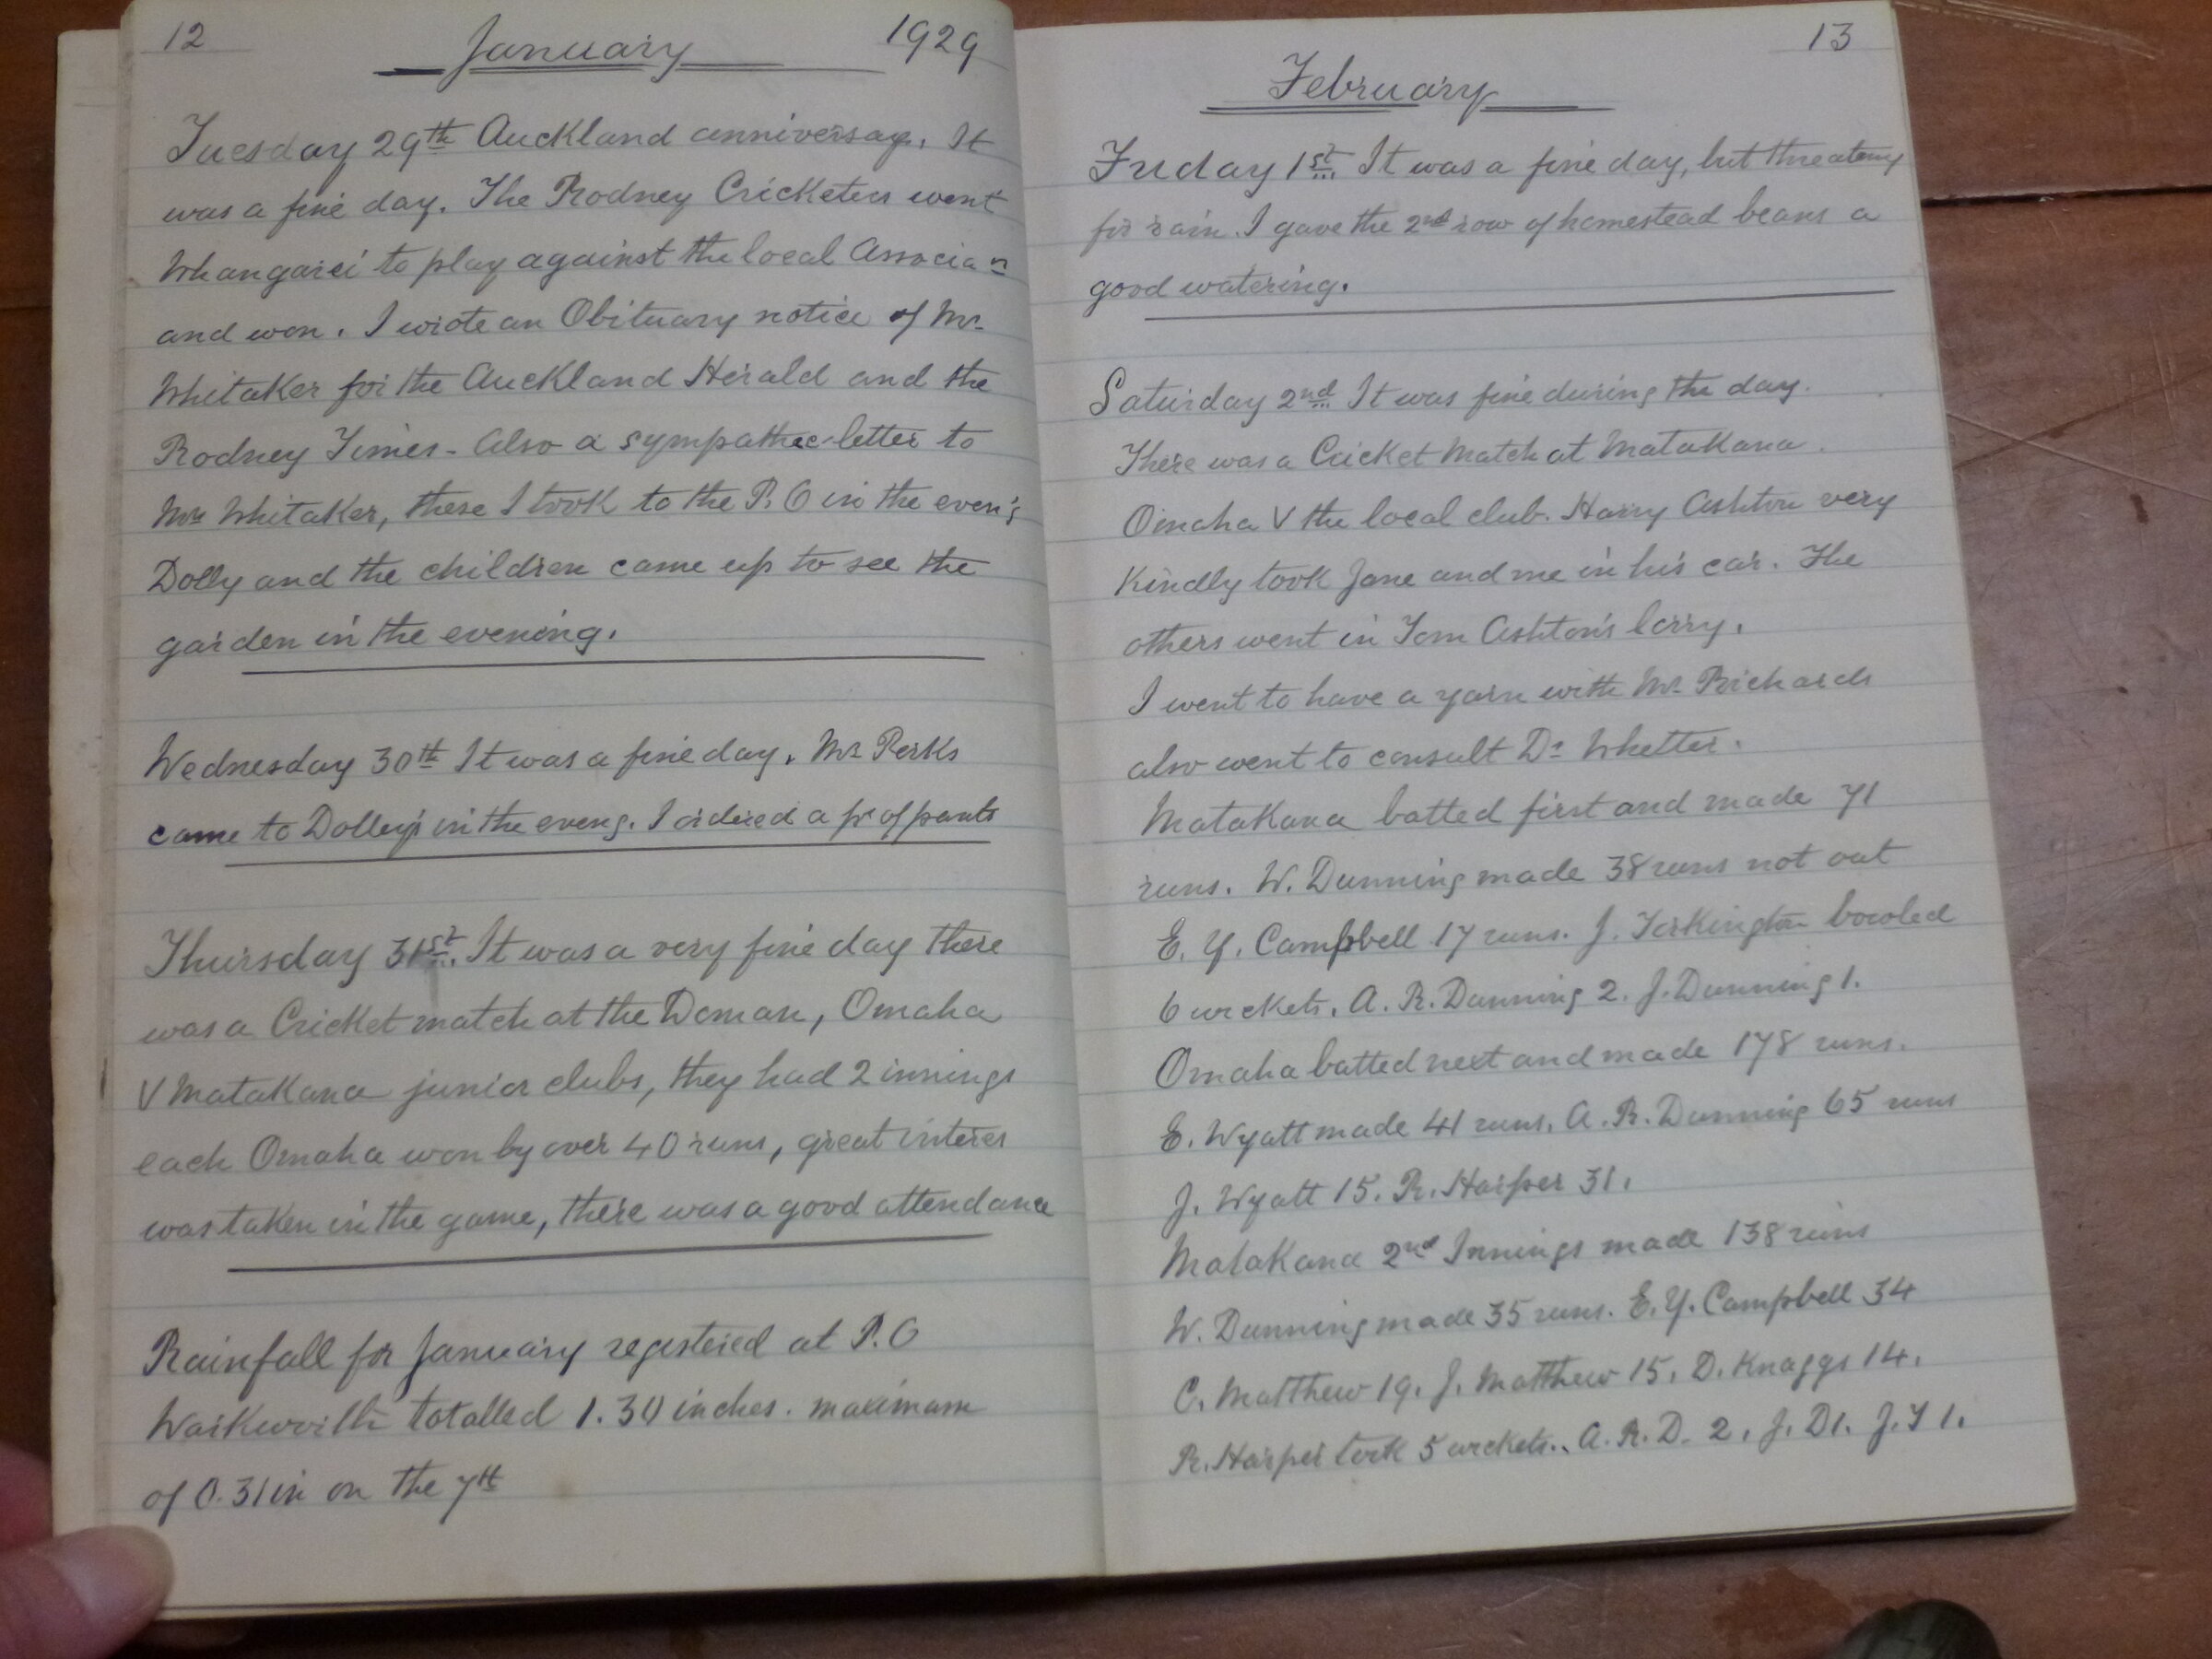 12 January 1929
Tuesday 29th Auckland anniversay. It
was a fine day. The Rodney Cricketers went
Whangarei to play against the local Associan
and won. I wrote an Obituary notice of Mr
Whitaker for the Auckland Herald and the
Rodney Times - Also a sympathec letter to
Mrs Whitaker, these I took to the P.O in the even'g
Dolly and the children came up to see the
garden in the evening.
Wednesday 30th It was a fine day. Mr Perks
came to Dolly's in the eveng. I ordered a pr of pants
Thursday 31st. It was a very fine day there
was a Cricket match at the Doman, Omaha
V Matakana junior clubs, they had 2 innings
each Omaha won by over 40 runs, great interes
was taken in the game, there was a good attendance
Rainfall for January registered at P.O
Warkworth totalled 1.30 inches. maximam
of 0.31 in on the 7th
13
February
Friday 1st. It was a fine day, but threateng
for rain. I gave the 2nd row of homestead beans a
good watering.
Saturday 2nd It was fine during the day.
There was a Cricket Match at Matakana.
Omaha V the local club. Harry Ashton very
Kindly took Jane and me in his car. The
others went in Tom Ashton's lorry.
I went to have a yarn with Mr Richards
also went to consult Dr Whetter.
Matakana batted first and made 71
runs. W. Dunning made 38 runs not out
E. Y. Campbell 17 runs. J. Torkington bowled
6 wickets. A. R. Dunning 2. J. Dunning 1.
Omaha batted next and made 178 runs.
E. Wyatt made 41 runs. A. R. Dunning 65 runs
J. Wyatt 15. R. Harper 31.
Matakana 2nd Innings made 138 runs
W. Dunning made 35 runs. E. Y. Campbell 34
C. Matthew 19. J. Matthew 15. D. Knaggs 14.
R. Harper took 5 wickets. A. R. D. 2. J. D 1. J. T 1.